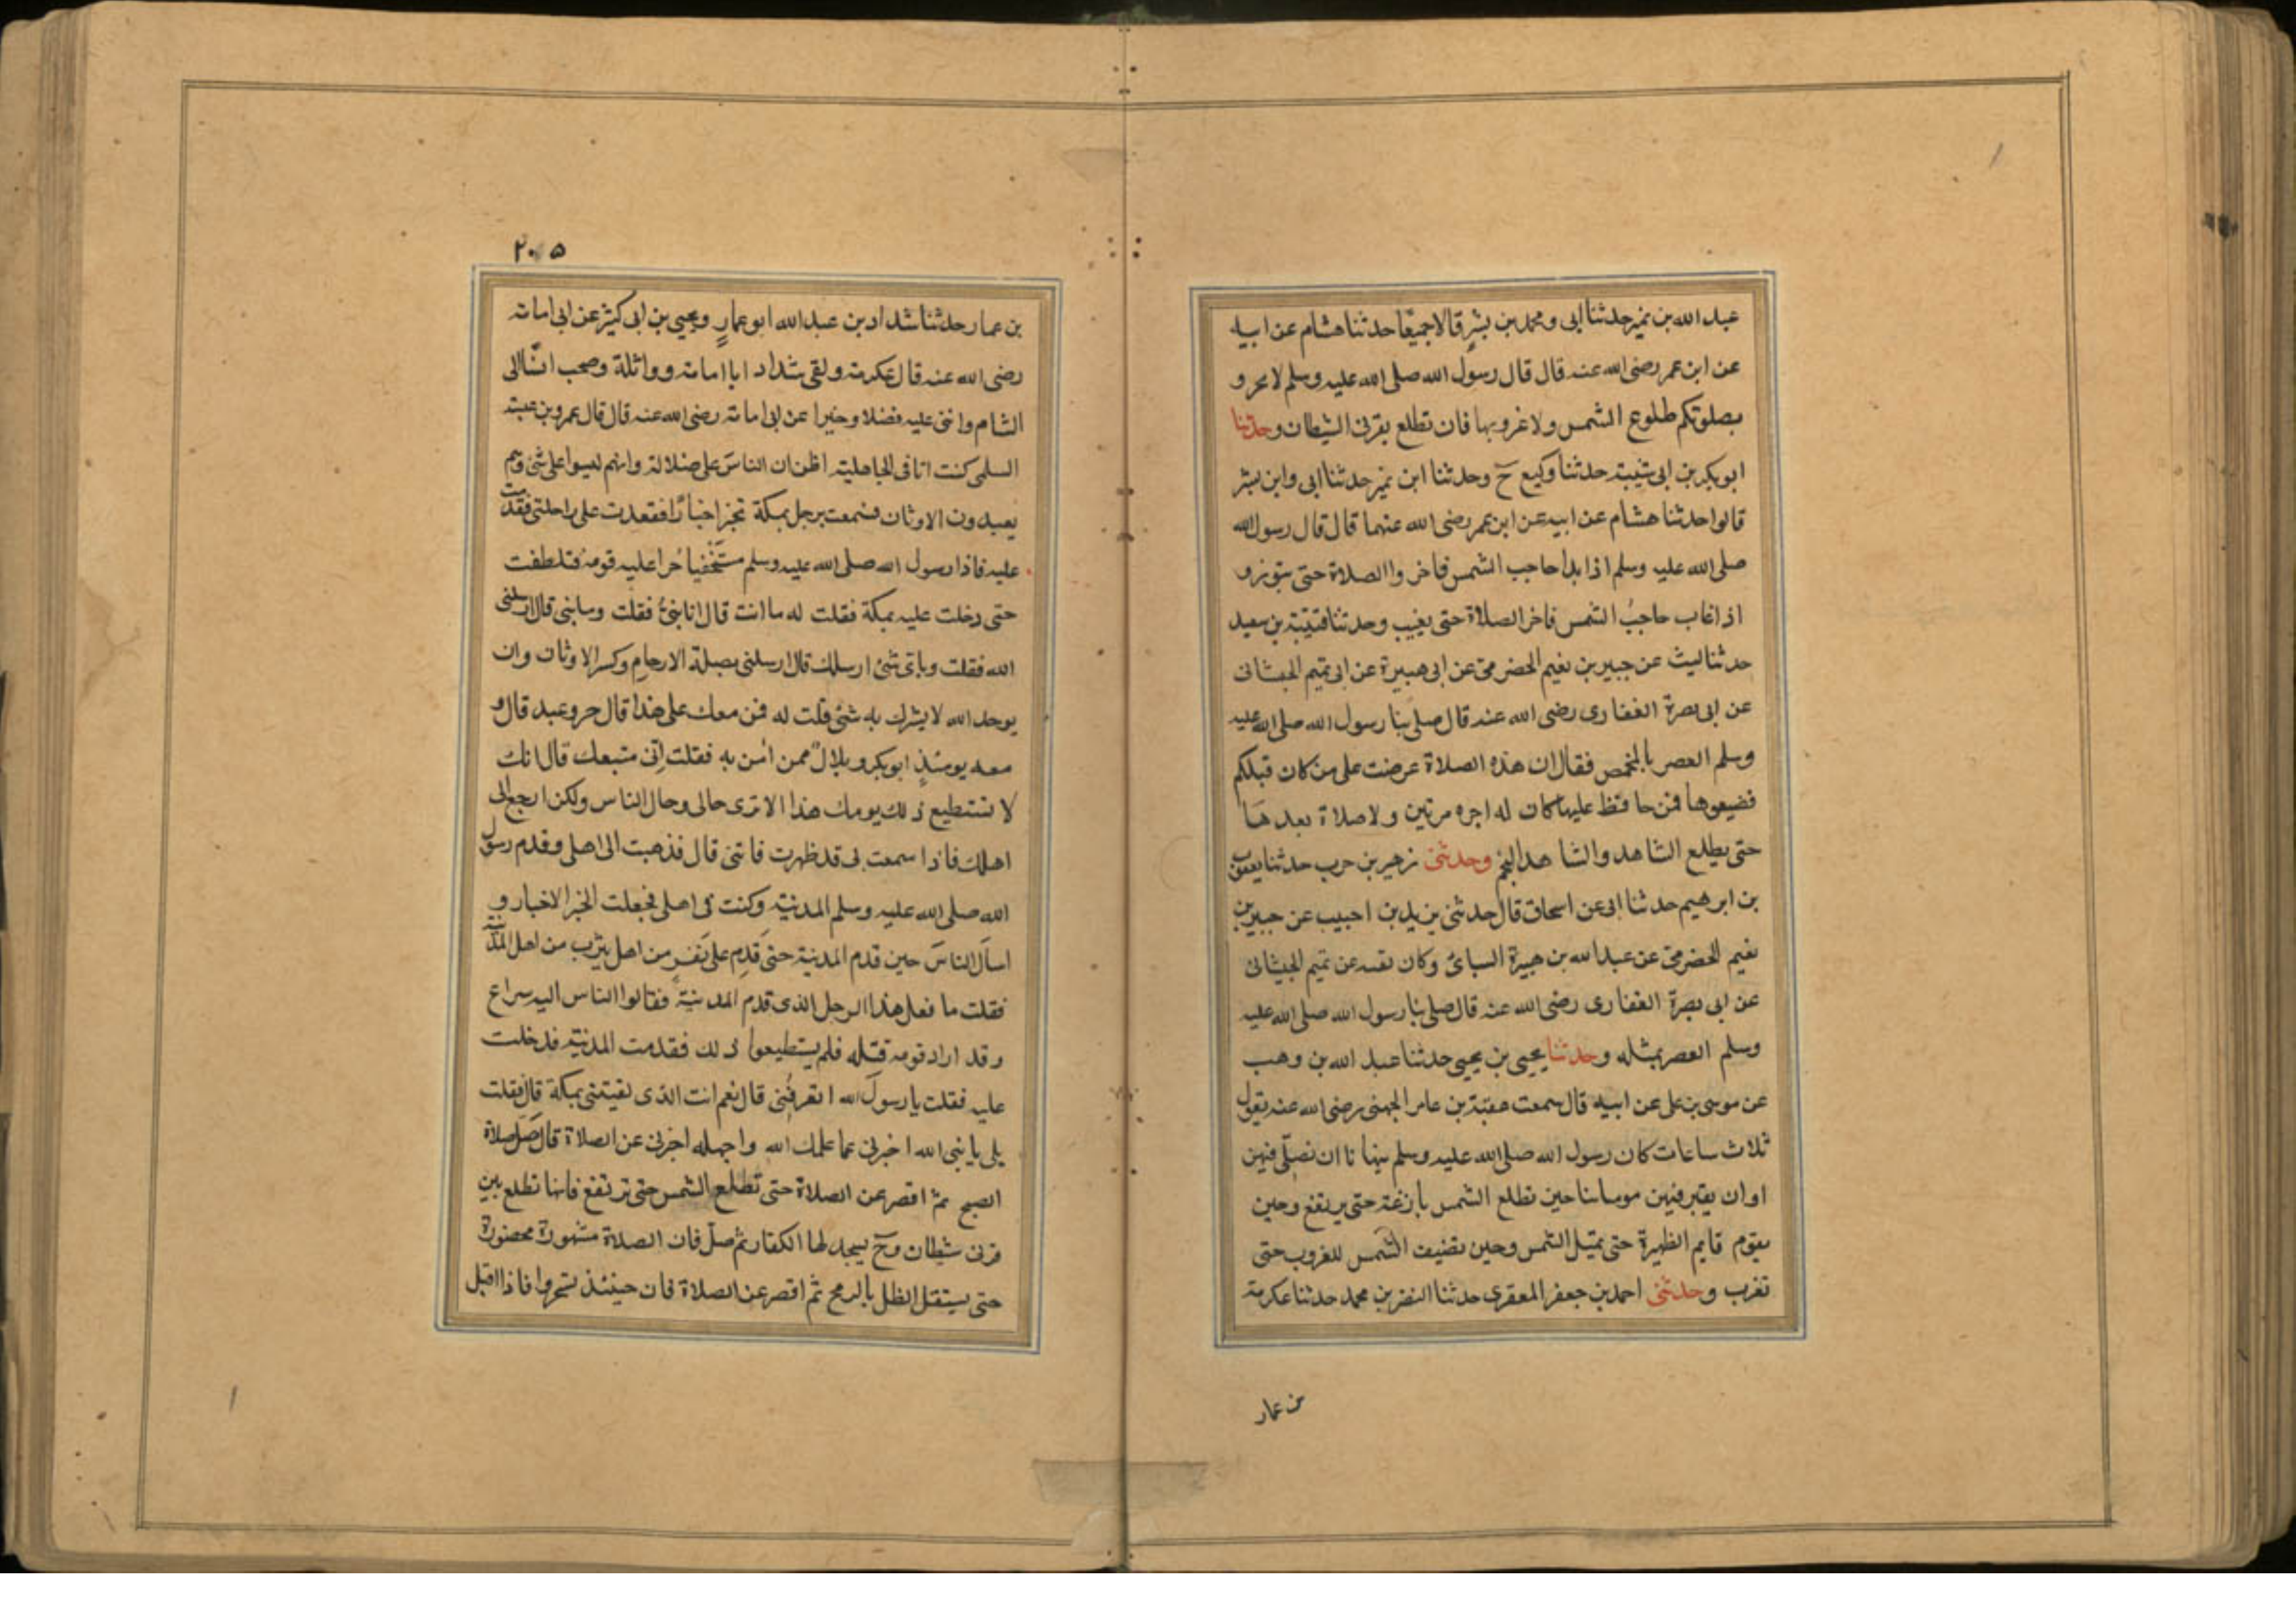 عبد الله بن نمير حدثنا ابى ومحمد بن بشرٍ قالا جميعًا حدثنا هشام عن ابيه
عن ابن عمر رضى الله عنه قال قال رسول الله صلى الله عليه وسلم لا تحروا
بصلوتكم طلوع الشمس ولا غروبها فان تطلع بقرنى الشيطان وحدثنا
ابو بكر بن ابى شيبة حدثنا وكيع ح وحدثنا ابن نمير حدثنا ابى وابن بشر
قالوا حدثنا هشام عن ابيه عن ابن عمر رضى الله عنهما قال قال رسول الله
صلى الله عليه وسلم اذا بدا حاجب الشمس فاخروا الصلاة حتى تبرز و
اذا غاب حاجبُ الشمس فاخر الصلاة حتى يغيب وحدثنا قتيبة بن سعيد
حدثنا ليث عن جبير بن نعيم الحضرمى عن ابى هبيرة عن ابى تميم الجيشانى
عن ابى بصرة الغفارى رضى الله عنه قال صلى بنا رسول الله صلى الله عليه
وسلم العصر بالمخمص فقال ان هذه الصلاة عرضت على من كان قبلكم
فضيعوها فمن حافظ عليها كان له اجره مرتين ولا صلاة بعدها
حتى يطلع الشاهد والشاهد النجم وحدثنى زهير بن حرب حدثنا يعقوب
بن ابرهيم حدثنا ابى عن اسحاق قال حدثنى يزيد بن احبيب عن جبير بن
نعيم الحضرمى عن عبد الله بن هبيرة السبائى وكان ثقة عن تميم الجيشانى
عن ابى بصرة الغفارى رضى الله عنه قال صلى بنا رسول الله صلى الله عليه
وسلم العصر بمثله وحدثنا يحيى بن يحيى حدثنا عبد الله بن وهب
عن موسى بن على عن ابيه قال سمعت عقبة بن عامر الجهنى رضى الله عنه يقول
ثلاث ساعات كان رسول الله صلى الله عليه وسلم ينهانا ان نصلّى فيهن
او ان يقبر فيهن موتانا حين تطلع الشمس بازغة حتى يرتفع وحين
يقوم قايم الظهيرة حتى تميل الشمس وحين تضيف الشمس للغروب حتى
تغرب وحدثنى احمد بن جعفر المعقرى حدثنا النضر بن محمد حدثنا عكرمة
بن عمار
٢٠٥
بن عمار حدثنا شداد بن عبد الله ابو عمارٍ ويحيى بن ابى كثير عن ابى امامة
رضى الله عنه قال عكرمة ولقى شداد ابا امامة وواثلة وصحب انسًا الى
الشام واثنى عليه فضلا وخيرا عن ابى امامة رضى الله عنه قال قال عمرو بن عبسة
السلمى كنت انا فى الجاهلية اظن ان الناس على ضلالة وانهم ليسوا على شئ وهم
يعبدون الاوثان فسمعت برجل بمكة تخبر اخبارًا فقعدت على راحلتى فقدمت
عليه فاذا رسول الله صلى الله عليه وسلم مستخفيا حرا عليه قومه فتلطفت
حتى دخلت عليه بمكة فقلت له ما انت قال انا نبىٌ فقلت وما نبى قال ارسلنى
الله فقلت وباى شئ ارسلك قال ارسلنى بصلة الارحام وكسر الاوثان وان
يوحد الله لا يشرك به شئ قلت له فمن معك على هذا قال حر وعبد قال و
معه يومئذٍ ابو بكر وبلالٌ ممن امن به فقلت انى متبعك قال انك
لا تستطيع ذلك يومك هذا الا ترى حالى وحال الناس ولكن ارجع الى
اهلك فاذا سمعت بى قد ظهرت فاتنى قال فذهبت الى اهلى وقدم رسول
الله صلى الله عليه وسلم المدينة وكنت فى اهلى فجعلت اتخبر الاخبار و
اسأل الناسَ حين قدم المدينة حتى قدِم على نفر من اهل يثرب من اهل المدينة
فقلت ما فعل هذا الرجل الذى قدم المدينة فقالوا الناس اليه سراع
وقد اراد قومه قتله فلم يستطيعوا ذلك فقدمت المدينة فدخلت
عليه فقلت يا رسولَ الله اتعرفُنى قال نعم انت الذى لقيتنى بمكة قال فقلت
بلى يا نبى الله اخبرنى عما علمك الله واجهله اخبرنى عن الصلاة قال صَلِّ صلاة
الصبح ثم اقصر عن الصلاة حتى تطلع الشمس حتى ترتفع فانها تطلع بين
قرنى شيطان وح يسجد لها الكفار ثم صلّ فان الصلاة مشهودة محضورة
حتى يستقل الظل بالرمح ثم اقصر عن الصلاة فان حينئذ تسجر وا فاذا اقبل